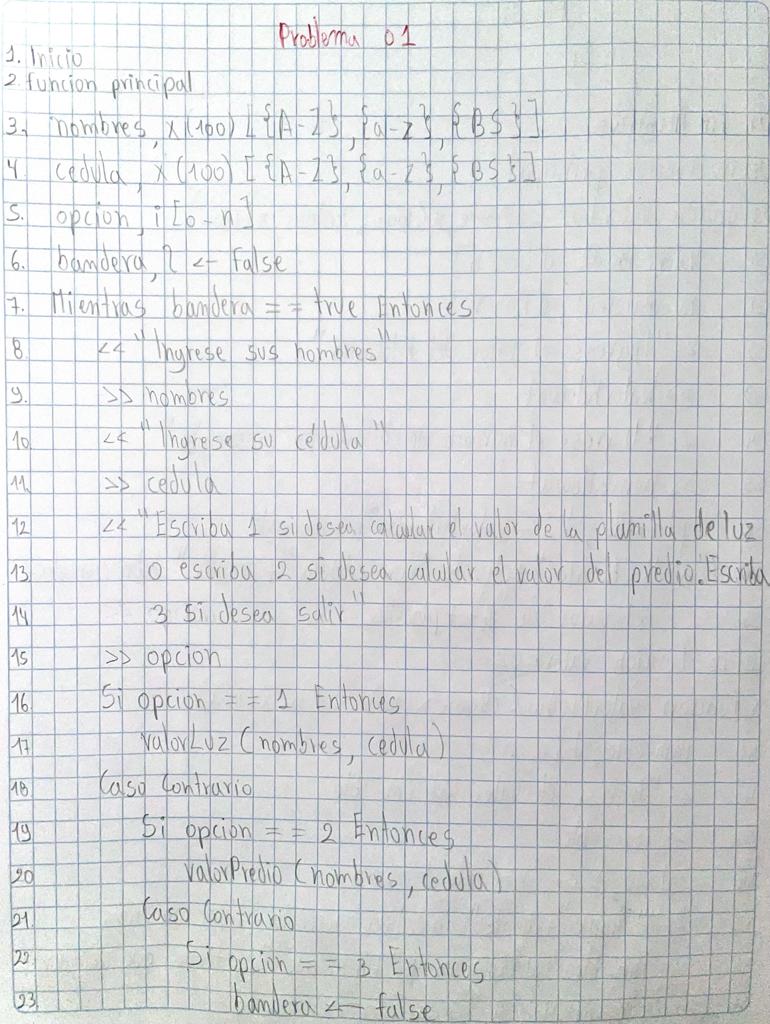 Problema 01
1. Inicio
2. funcion principal
3. nombres, x(100) [{A-Z}, {a-z}, {BS}]
4. cedula, x(100) [{A-Z}, {a-z}, {BS}]
5. opcion, i [0-n]
6. bandera, l <- false
7. Mientras bandera == true Entonces
8. << "Ingrese sus nombres"
9. >> nombres
10 << "Ingrese su cédula"
11. >> cedula
12 << "Escriba 1 si desea calcular el valor de la planilla de luz
13 o escriba 2 si desea calcular el valor del predio. Escriba
14 3 si desea salir"
15 >> opcion
16 Si opcion == 1 Entonces
17 valorLuz (nombres, cedula)
18 Caso Contrario
19 Si opcion == 2 Entonces
20 valorPredio (nombres, cedula)
21 Caso Contrario
22 Si opcion == 3 Entonces
23 bandera <- false